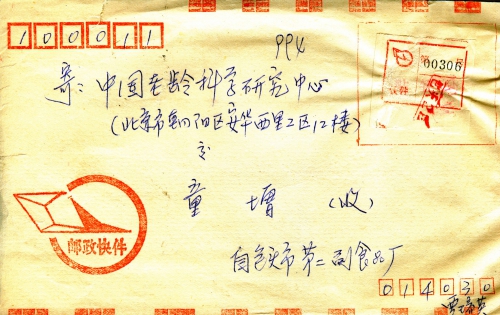 100011
994
寄：中国老龄科学研究中心
00306
快件
（北京市朝阳区安华西里2区12楼）
童增（收）
邮政快件
自包头市第二副食品厂
014030